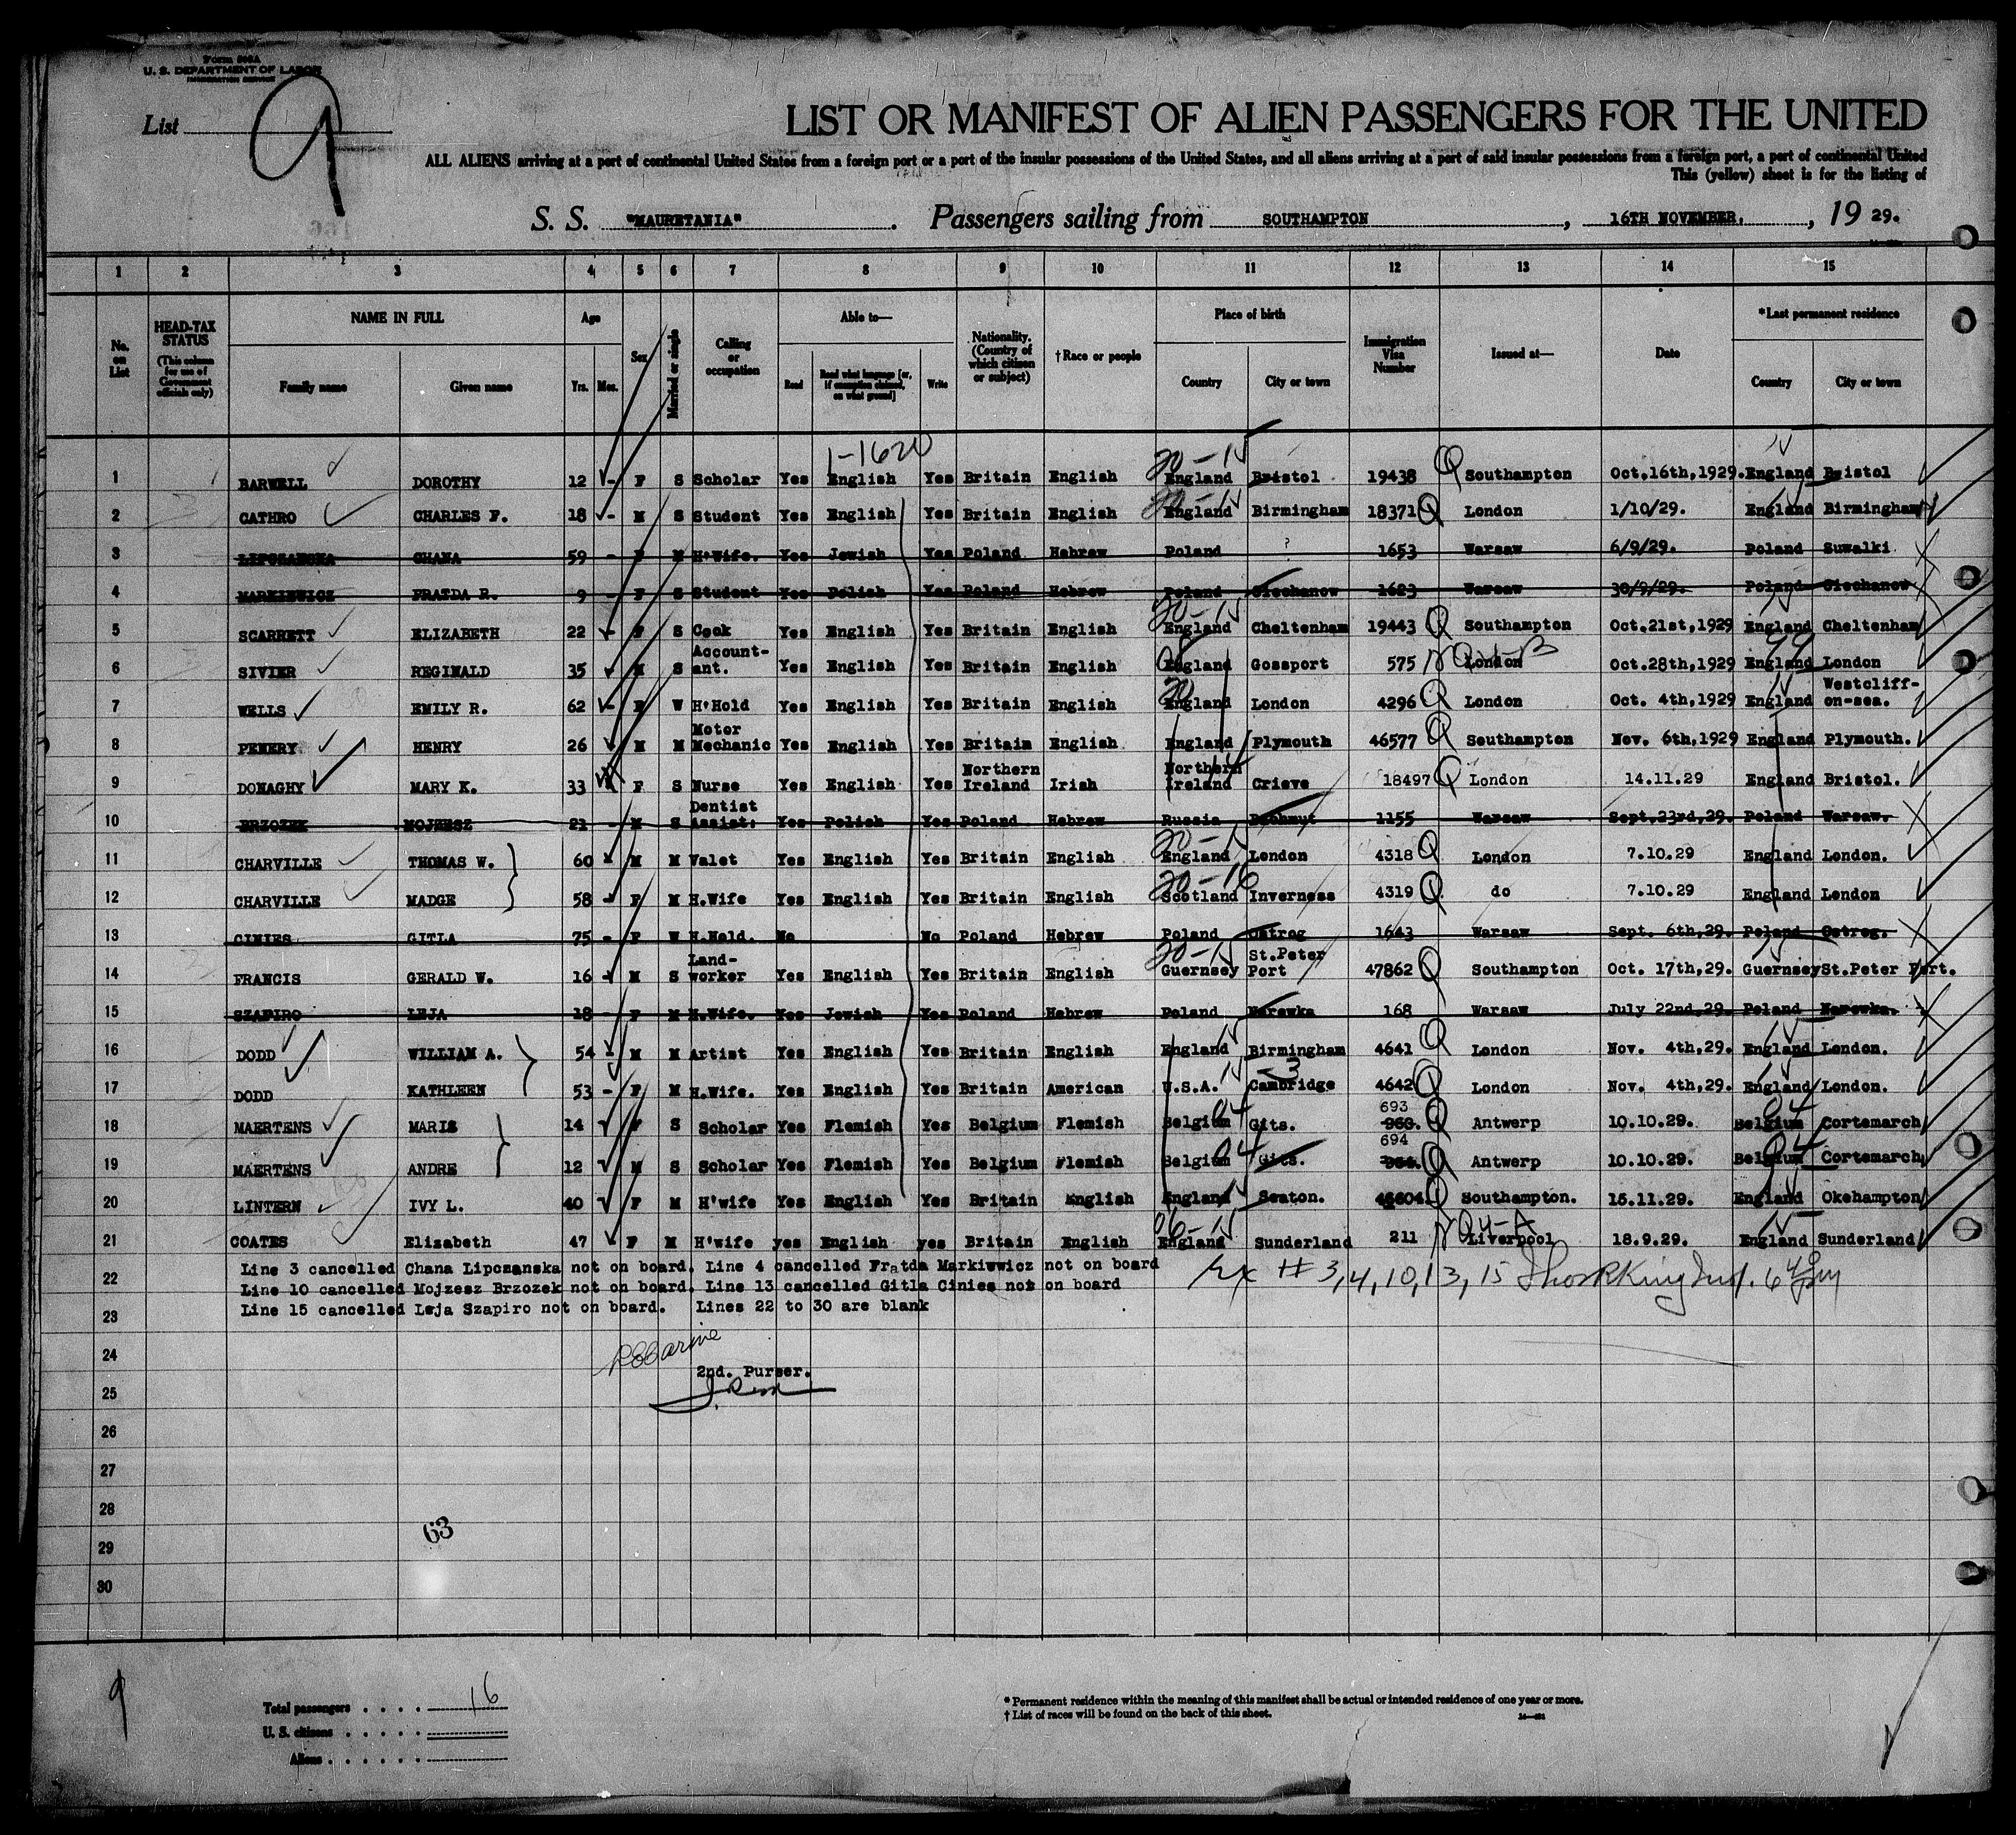 Form 500A
U. S. DEPARTMENT OF LABOR
IMMIGRATION SERVICE
List 9
LIST OR MANIFEST OF ALIEN PASSENGERS FOR THE UNITED
ALL ALIENS arriving at a port of continental United States from a foreign port or a port of the insular possessions of the United States, and all aliens arriving at a port of said insular possessions from a foreign port, a port of continental United
This (yellow) sheet is for the listing of
S. S. "MAURETANIA". Passengers sailing from SOUTHAMPTON, 16TH NOVEMBER., 19 29.
1 2 3 4 5 6 7 8 9 10 11 12 13 14 15
No. on List
HEAD-TAX STATUS (This column for use of Government officials only)
NAME IN FULL Family name Given name
Age Yrs. Mos.
Sex
Married or single
Calling or occupation
Able to— Read Read what language [or, if exemption claimed, on what ground] Write
Nationality. (Country of which citizen or subject)
†Race or people
Place of birth Country City or town
Immigration Visa Number
Issued at—
Date
*Last permanent residence Country City or town
1-1620
1 BARWELL DOROTHY 12 - F S Scholar Yes English Yes Britain English England Bristol 19438 Southampton Oct.16th,1929. England Bristol
2 CATHRO CHARLES F. 18 - M S Student Yes English Yes Britain English England Birmingham 18371 London 1/10/29. England Birmingham
3 LIPCZANSKA CHANA 59 - F M H'Wife. Yes Jewish Yes Poland Hebrew Poland ? 1653 Warsaw 6/9/29. Poland Suwalki
4 MARKIEWICZ FRATDA R. 9 - F S Student Yes Polish Yes Poland Hebrew Poland Ciechanow 1623 Warsaw 30/9/29. Poland Ciechanow
5 SCARRETT ELIZABETH 22 - F S Cook Yes English Yes Britain English England Cheltenham 19443 Southampton Oct.21st,1929 England Cheltenham
6 SIVIER REGINALD 35 M S Account-ant. Yes English Yes Britain English England Gosport 575 London Oct.28th,1929 England London
7 WELLS EMILY R. 62 - F W H'Hold Yes English Yes Britain English England London 4296 London Oct. 4th,1929 England Westcliff-on-sea.
8 PENERY HENRY 26 M M Motor Mechanic Yes English Yes Britain English England Plymouth 46577 Southampton Nov. 6th,1929 England Plymouth.
9 DONAGHY MARY K. 33 F S Nurse Yes English Yes Northern Ireland Irish Northern Ireland Crieve 18497 London 14.11.29 England Bristol.
10 BRZOZEK MOJZESZ 21 - M S Dentist Assist. Yes Polish Yes Poland Hebrew Russia Bachmut 1155 Warsaw Sept.23rd,29. Poland Warsaw.
11 CHARVILLE THOMAS W. 60 M M Valet Yes English Yes Britain English England London 4318 London 7.10.29 England London.
12 CHARVILLE MADGE 58 - F M H.Wife Yes English Yes Britain English Scotland Inverness 4319 do 7.10.29 England London
13 CINIES GITLA 75 - F W H.Hold. No No Poland Hebrew Poland Ostrog 1643 Warsaw Sept. 6th,29. Poland Ostrog.
14 FRANCIS GERALD W. 16 - M S Land-worker Yes English Yes Britain English Guernsey St.Peter Port 47862 Southampton Oct. 17th,29. Guernsey St.Peter Port.
15 SZAPIRO LEJA 18 - F M H.Wife. Yes Jewish Yes Poland Hebrew Poland Narewka 168 Warsaw July 22nd,29. Poland Narewka.
16 DODD WILLIAM A. 54 - M M Artist Yes English Yes Britain English England Birmingham 4641 London Nov. 4th,29. England London.
17 DODD KATHLEEN 53 - F M H.Wife. Yes English Yes Britain American U.S.A. Cambridge 4642 London Nov. 4th,29. England London.
18 MAERTENS MARIE 14 F S Scholar Yes Flemish Yes Belgium Flemish Belgium Gits. 693 Antwerp 10.10.29. Belgium Cortemarch
19 MAERTENS ANDRE 12 M S Scholar Yes Flemish Yes Belgium Flemish Belgium Gits. 694 Antwerp 10.10.29. Belgium Cortemarch
20 LINTERN IVY L. 40 F M H'wife Yes English Yes Britain English England Seaton. 46604 Southampton. 15.11.29. England Okehampton
21 COATES Elizabeth 47 F M H'wife yes English yes Britain English England Sunderland 211 Liverpool 18.9.29. England Sunderland
22 Line 3 cancelled Chana Lipczanska not on board. Line 4 cancelled Fratda Markiewicz not on board
Line 10 cancelled Mojzesz Brzozek not on board. Line 13 cancelled Gitla Cinies not on board
Ex # 3, 4, 10, 13, 15
23 Line 15 cancelled Leja Szapiro not on board. Lines 22 to 30 are blank
24
2nd. Purser.
25
26
27
28
63
29
30
9
Total passengers . . . . 16
U. S. citizens . . . . .
Aliens . . . . . .
* Permanent residence within the meaning of this manifest shall be actual or intended residence of one year or more.
† List of races will be found on the back of this sheet.